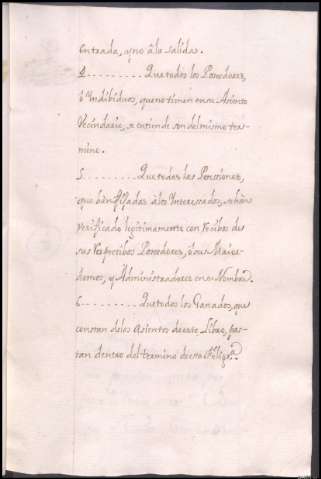 entrada, y no â la salida.
4......... Que todos los Posedores,
ô Yndibiduos, que no tienen en su Asiento
Vecindario, se entiende son del mismo ter-
mino.
5......... Que todas las Penciones,
que bàn fijadas â los Interessados, se hàn
verificado legitimamente con recibos de
sus respectibos Posedores, ô sus Maior-
domos, y Administradores en su Nombre.
6......... Que todos los Ganados, que
constan de los Asientos de este Libro, pas-
tan dentro del termino de esta Feligr.ª